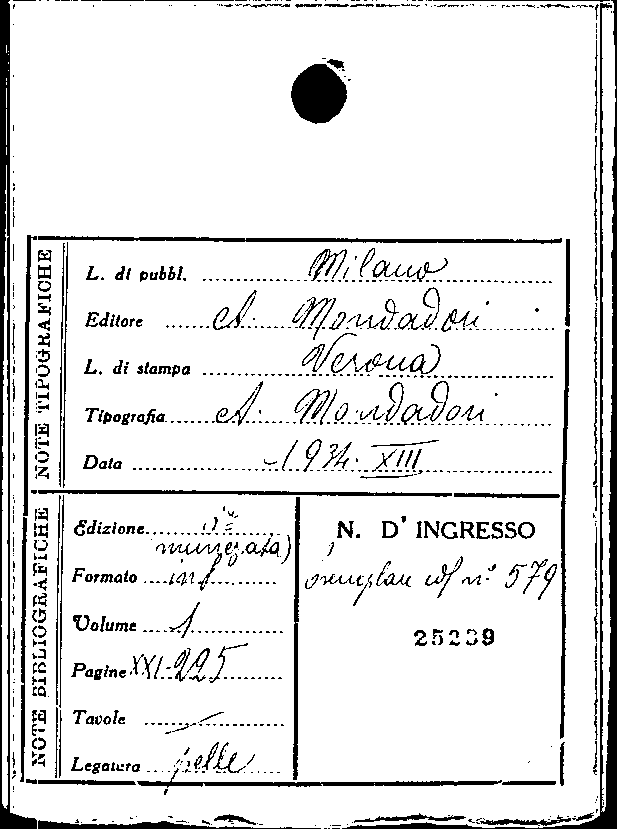 NOTE TIPOGRAFICHE
L. di pubbl. Milano
Editore A. Mondadori
L. di stampa Verona
Tipografia A. Mondadori
Data 1934. XIII
NOTE BIBLIOGRAFICHE
Edizione 1ª
numerata)
Formato in f
Volume 1
Pagine XXI-225
Tavole —
Legatura pelle
N. D' INGRESSO
n.° 579
25239